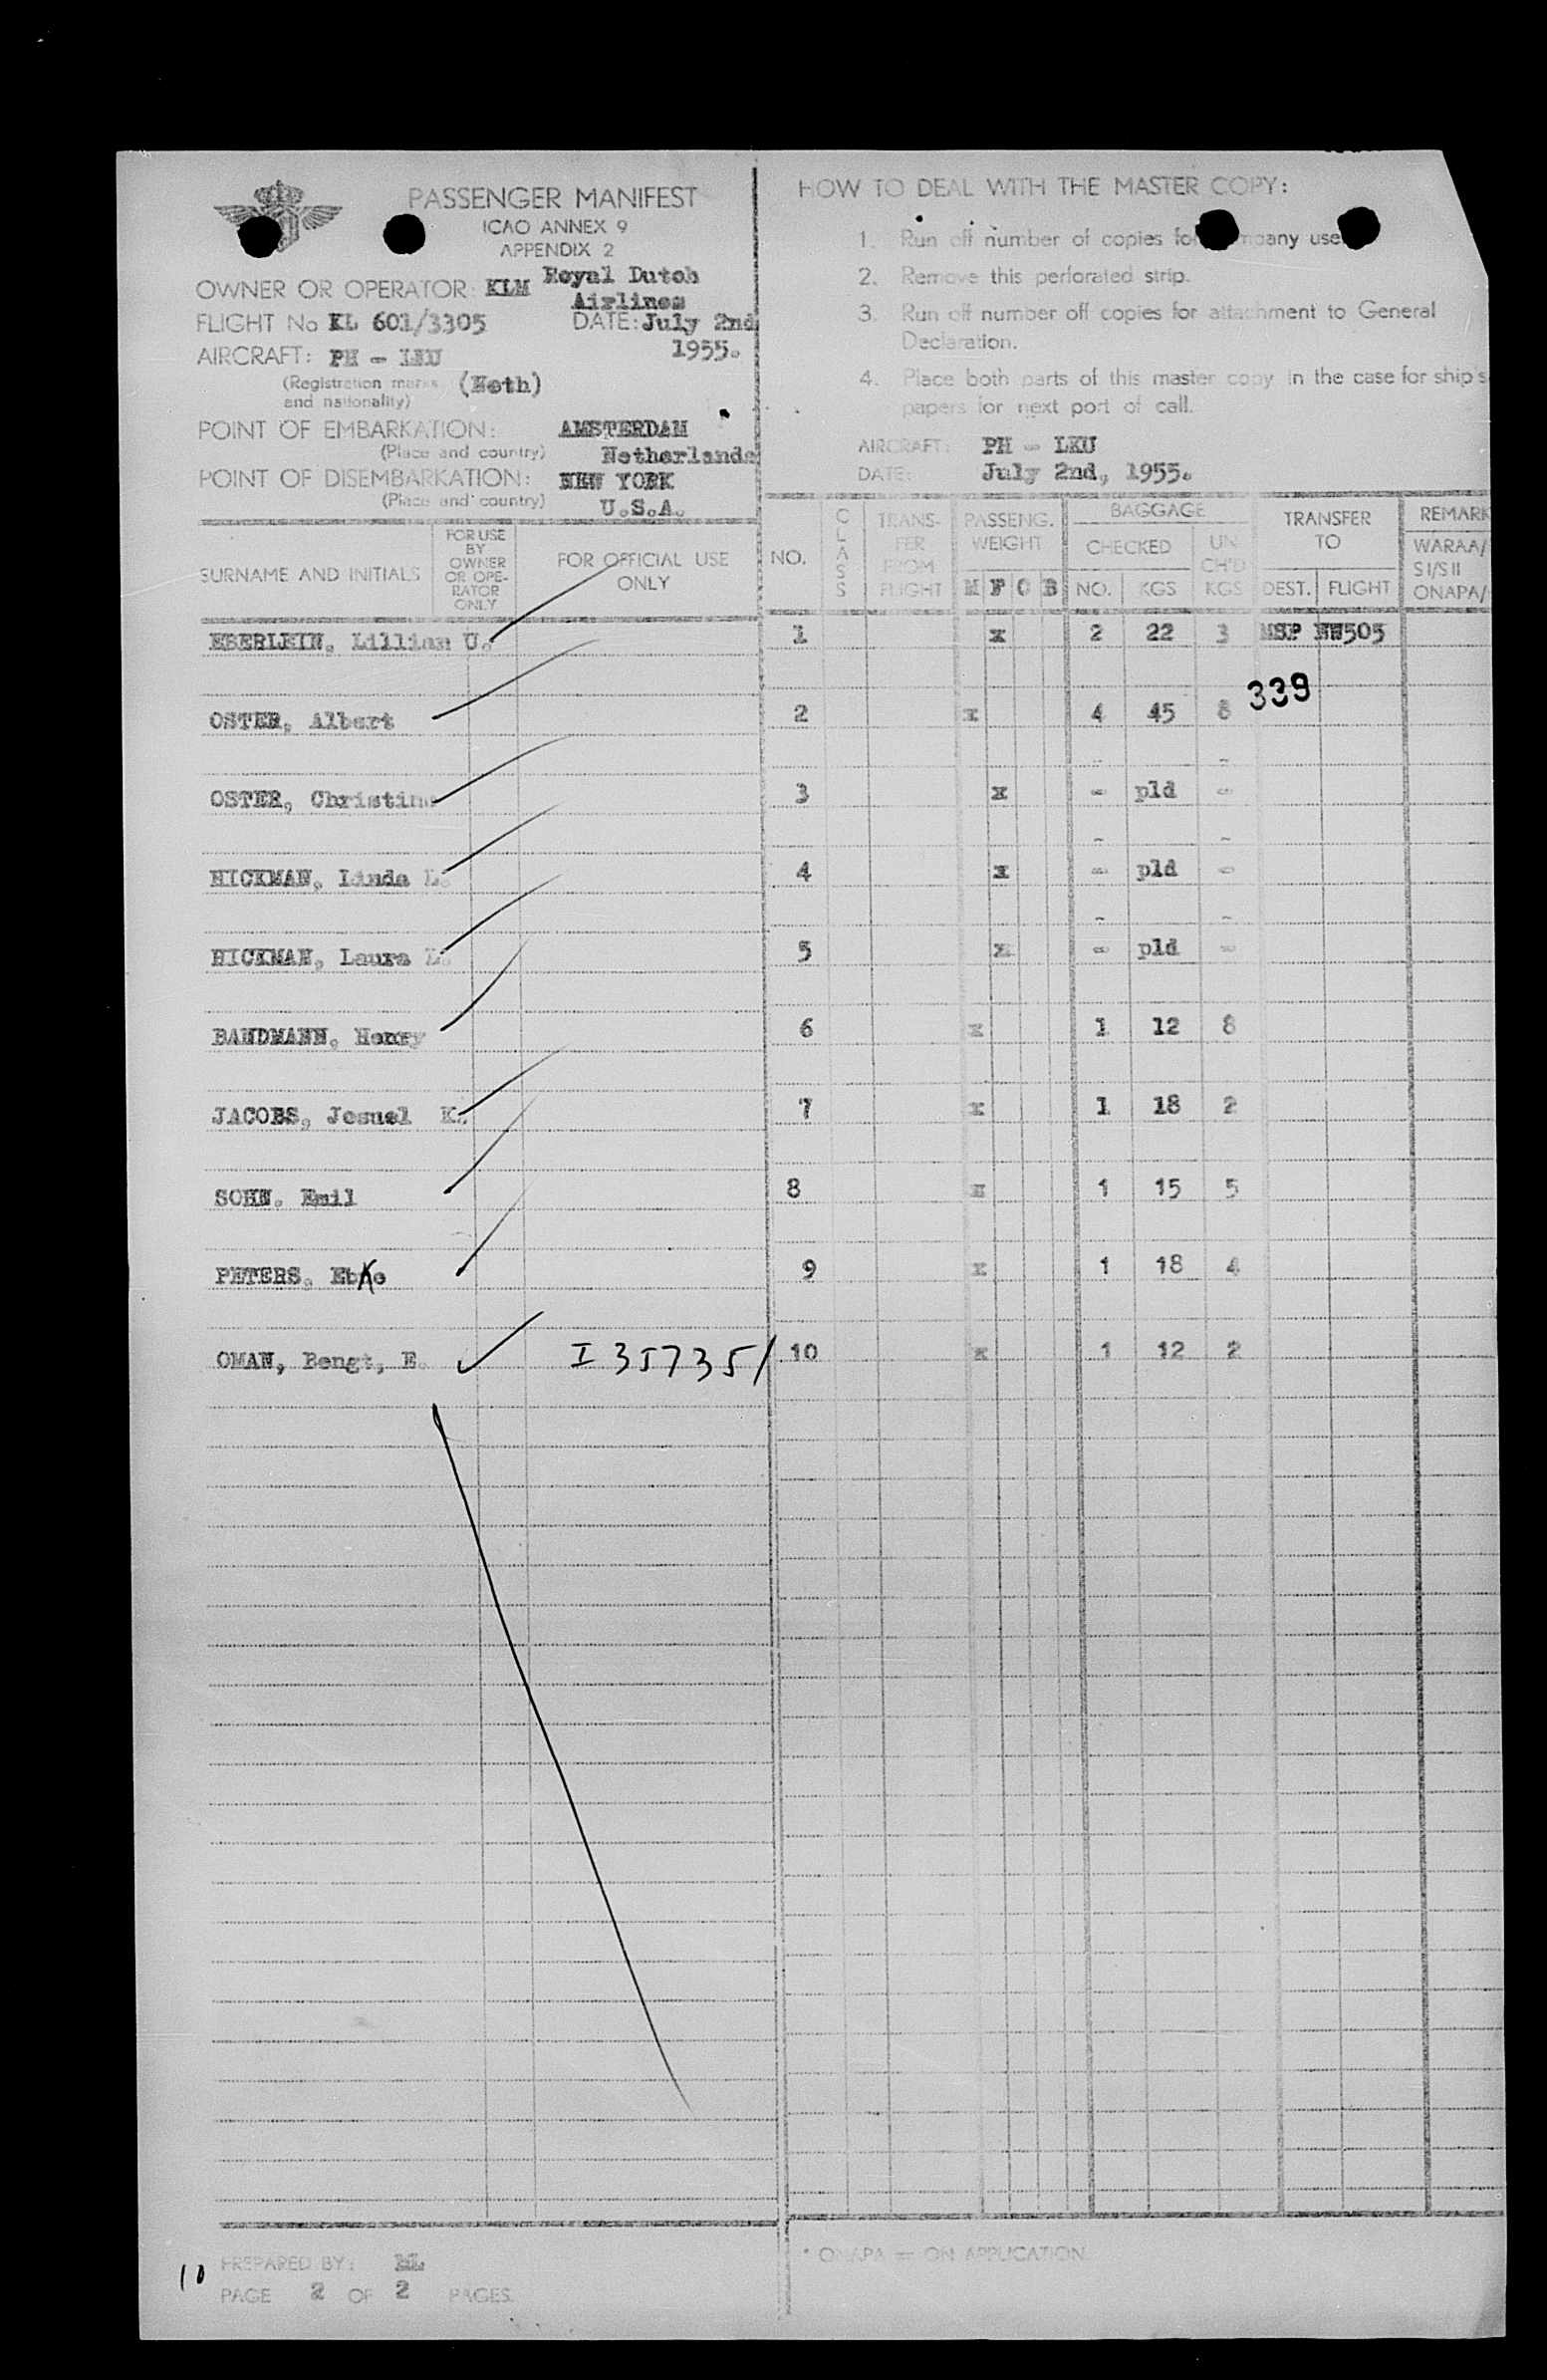 PASSENGER MANIFEST
ICAO ANNEX 9
APPENDIX 2
OWNER OR OPERATOR: KLM Royal Dutch
Airlines
FLIGHT No KL 601/3305 DATE: July 2nd
1955.
AIRCRAFT: PH - LKU
(Registration marks (Neth)
and nationality)
POINT OF EMBARKATION: AMSTERDAM
(Place and country) Netherlands
POINT OF DISEMBARKATION: NEW YORK
(Place and country) U.S.A.
SURNAME AND INITIALS
FOR USE
BY
OWNER
OR OPE-
RATOR
ONLY
FOR OFFICIAL USE
ONLY
HOW TO DEAL WITH THE MASTER COPY:
1. Run off number of copies for use
2. Remove this perforated strip.
3. Run off number off copies for attachment to General
Declaration.
4. Place both parts of this master copy in the case for ship's
papers for next port of call.
AIRCRAFT: PH - LKU
DATE: July 2nd, 1955.
NO.
CLASS
TRANS-
FER
FROM
FLIGHT
PASSENG.
WEIGHT
M F C B
BAGGAGE
CHECKED
NO. KGS
UN
CH'D
KGS
TRANSFER
TO
DEST. FLIGHT
REMARK
WARAA/
SI/SII
ONAPA/
EBERLEIN, Lillian U. 1 x 2 22 3 MSP NW505
339
OSTER, Albert 2 x 4 45 8
OSTER, Christine 3 x - pld -
HICKMAN, Linda L. 4 x - pld -
HICKMAN, Laura L. 5 x - pld -
BANDMANN, Henry 6 x 1 12 8
JACOBS, Jesuel K. 7 x 1 18 2
SOHN. Emil 8 x 1 15 5
PETERS, EbKe 9 x 1 18 4
OMAN, Bengt, E. I 357351 10 x 1 12 2
10 PREPARED BY: ML
PAGE 2 OF 2 PAGES.
* ONAPA = ON APPLICATION